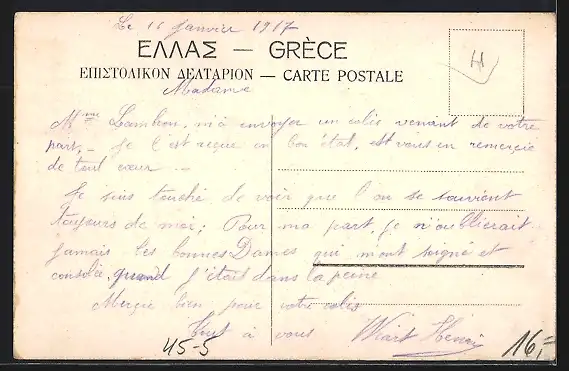 Le 16 Janvier 1917
ΕΛΛΑΣ — GRÈCE
ΕΠΙΣΤΟΛΙΚΟΝ ΔΕΛΤΑΡΙΟΝ — CARTE POSTALE
H
Madame
Mme Lambon, m'a envoyer un colis venant de votre
part, – Je l'est reçue en bon état, est vous en remercie
de tout cœur. –
Je suis touché de voir que l'on se souvient
toujours de moi; Pour ma part, je n'oublierait
jamais les bonnes Dames qui m'ont soigné et
consolée, quand j'était dans la peine
Merçie bien pour votre colis
Tout à vous Wiart Henri
45-5
16,=